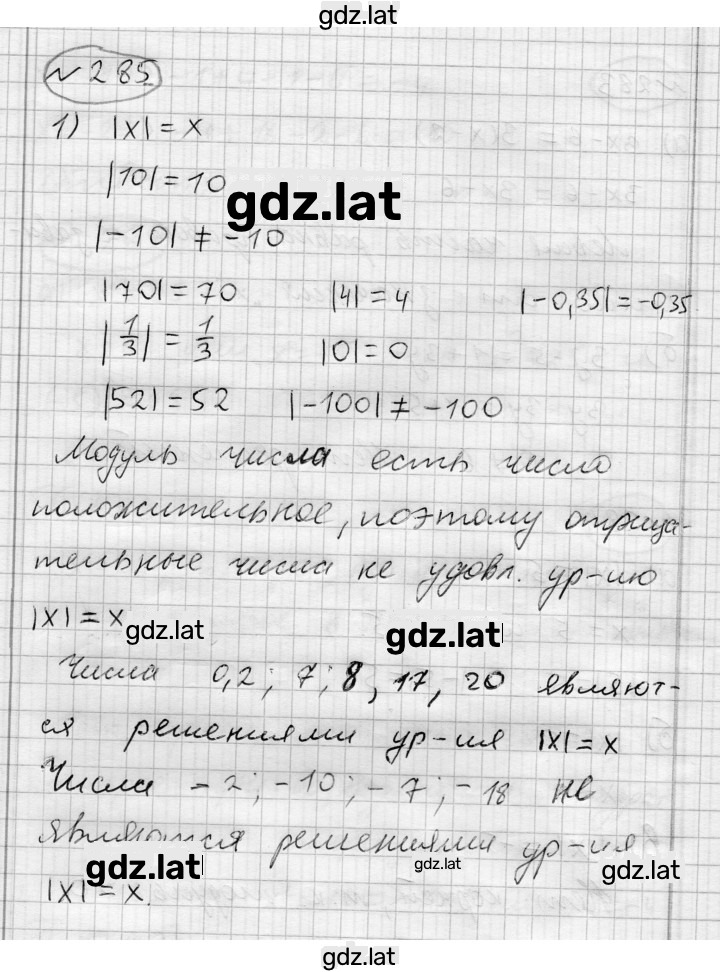 gdz.lat
№285
1) |x| = x
|10| = 10
gdz.lat
|-10| ≠ -10
|70| = 70 |4| = 4 |-0,35| = -0,35
|1/3| = 1/3 |0| = 0
|52| = 52 |-100| ≠ -100
Модуль числа есть число
положительное, поэтому отрица-
тельные числа не удовл. ур-ию
|x| = x
gdz.lat gdz.lat
Числа 0,2; 7; 8, 17, 20 являют-
ся решениями ур-ия |x| = x
Числа -2; -10; -7; -18 не
являются решениями ур-ия
gdz.lat gdz.lat gdz.lat
|x| = x.
gdz.lat gdz.lat